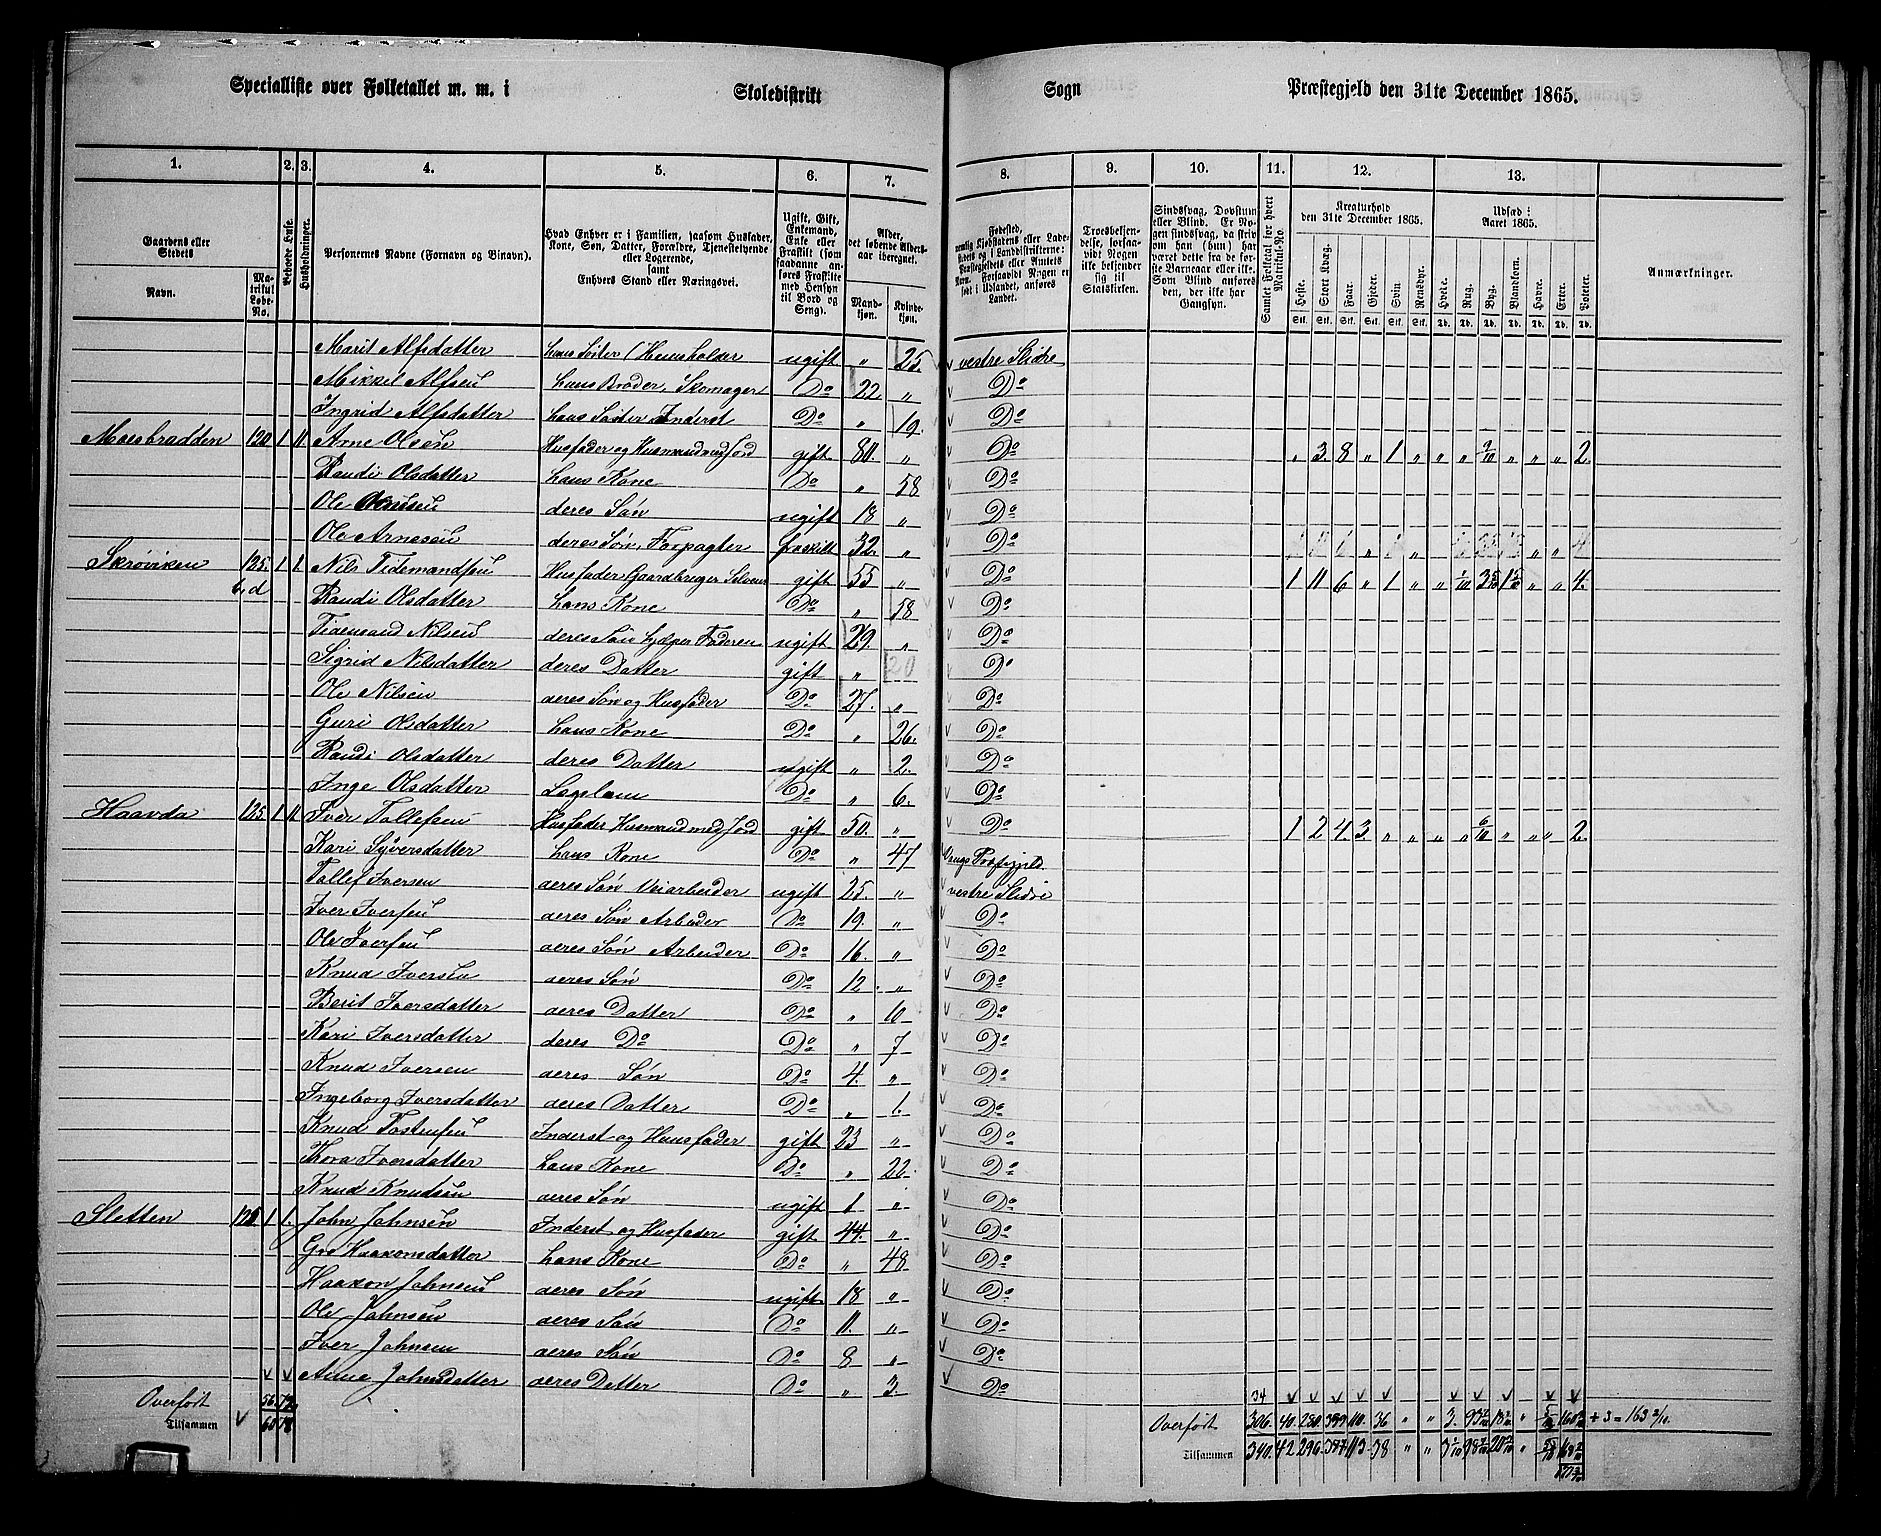 Specialliste over Folketallet m. m. i Skoledistrikt Sogn Præstegjeld den 31te December 1865.
1. 2. 3. 4. 5. 6. 7. 8. 9. 10. 11. 12. 13.
Gaardens eller Stedets Navn. Matrikul Løbe-No.
Beboede Huse.
Husholdninger.
Personernes Navne (Fornavn og Binavn).
Hvad Enhver er i Familien, saasom Husfader, Kone, Søn, Datter, Forældre, Tjenestetyende eller Logerende, samt Enhvers Stand eller Næringsvei.
Ugift, Gift, Enkemand, Enke eller Fraskilt (som saadanne anføres Fraskilte med Hensyn til Bord og Seng).
Alder, det løbende Alders-aar iberegnet. Mandkjøn. Kvindekjøn.
Fødested,
Troesbekjendelse, forsaavidt Nogen ikke bekjender sig til Statskirken.
Sindssvag, Døvstum eller Blind. Er Nogen sindssvag, da skrives om han (hun) har været dette fra de første Barneaar eller ikke. Som Blind anføres den, der ikke har Gangsyn.
Samlet Folketal for hvert Matrikul-No.
Kreaturhold den 31te December 1865.
Heste. Stort Kvæg. Faar. Gjeder. Svin. Rensdyr.
Udsæd i Aaret 1865.
Hvede. Rug. Byg. Blandkorn. Havre. Erter. Poteter.
Anmærkninger.
Marit Alfsdatter hans Søster (Huusholder ugift „ 25. vestre Slidre
Mikkel Alfsen hans Broder, Skomager Do 22. „ Do
Ingrid Alfsdatter hans Søster Inderst Do „ 19. Do
Moesbradden 120 1 11 Arne Olsen Husfader og Husmand med Jord gift 80. „ Do „ 3 8 „ 1 „ „ „ „ „ „ 2.
Randi Olsdatter hans Kone Do „ 58 Do
Ole deres Søn ugift 18 „ Do
Ole Arnesen deres Søn, Forpagter fraskilt 32. „ Do
Skrøviken 125. 1 1. Nils Tidemandsen Husfader Gaardbruger Selveier gift 55 „ Do 1 11 6 „ 1 „ „ 1/10 „ „ 4.
6, d Randi Olsdatter hans Kone Do „ 58 Do
Tidemand Nilsen deres Søn hjelper Faderen ugift 29. „ Do
Sigrid Nilsdatter deres Datter gift „ 20 Do
Ole Nilsen deres Søn og Husfader Do 27. „ Do
Guri Olsdatter hans Kone Do „ 26. Do
Randi Olsdatter deres Datter ugift „ 2. Do
Inge Olsdatter Lægslem Do „ 6. Do
Haavda 125 1 11 Iver Tollefsen Husfader Husmand med Jord gift 50. „ Do 1 2 4. 3. „ „ „ „ 6/10 „ „ „ 2.
Kari Syversdatter hans Kone Do „ 47 Vangs Præstegjeld
Tollef Iversen deres Søn Veiarbeider ugift 25. „ vestre Slidre
Iver Iversen deres Søn Arbeider Do 19. „ Do
Ole Iversen deres Søn Arbeider Do 16. „ Do
Knud Iversen deres Søn Do 12. „ Do
Berit Iversdatter deres Datter Do „ 10 Do
Kari Iversdatter deres Do Do „ 7 Do
Knud Iversen deres Søn Do 4. „ Do
Ingeborg Iversdatter deres Datter Do „ 1. Do
Knud Tostensen Inderst og Huusfader gift 23 „ Do
Thora Iversdatter hans Kone Do „ 22. Do
Knud Knudsen deres Søn ugift 1 „ Do
Sletten 125 1 1. John Johnsen Inderst og Husfader gift 44. „ Do
Gro Haakonsdatter hans Kone Do „ 48 Do
Haakon Johnsen deres Søn ugift 18 „ Do
Ole Johnsen deres Søn Do 11. „ Do
Iver Johnsen deres Søn Do 8 „ Do
Anne Johnsdatter deres Datter Do „ 3. Do
34
Overført 56. 72. Overført 306. 40. 280. 110. 36 „ „ 3. + 3 = 163 2/10.
Tilsammen 60 78 Tilsammen 340. 42. 296. 113. 38 „ „